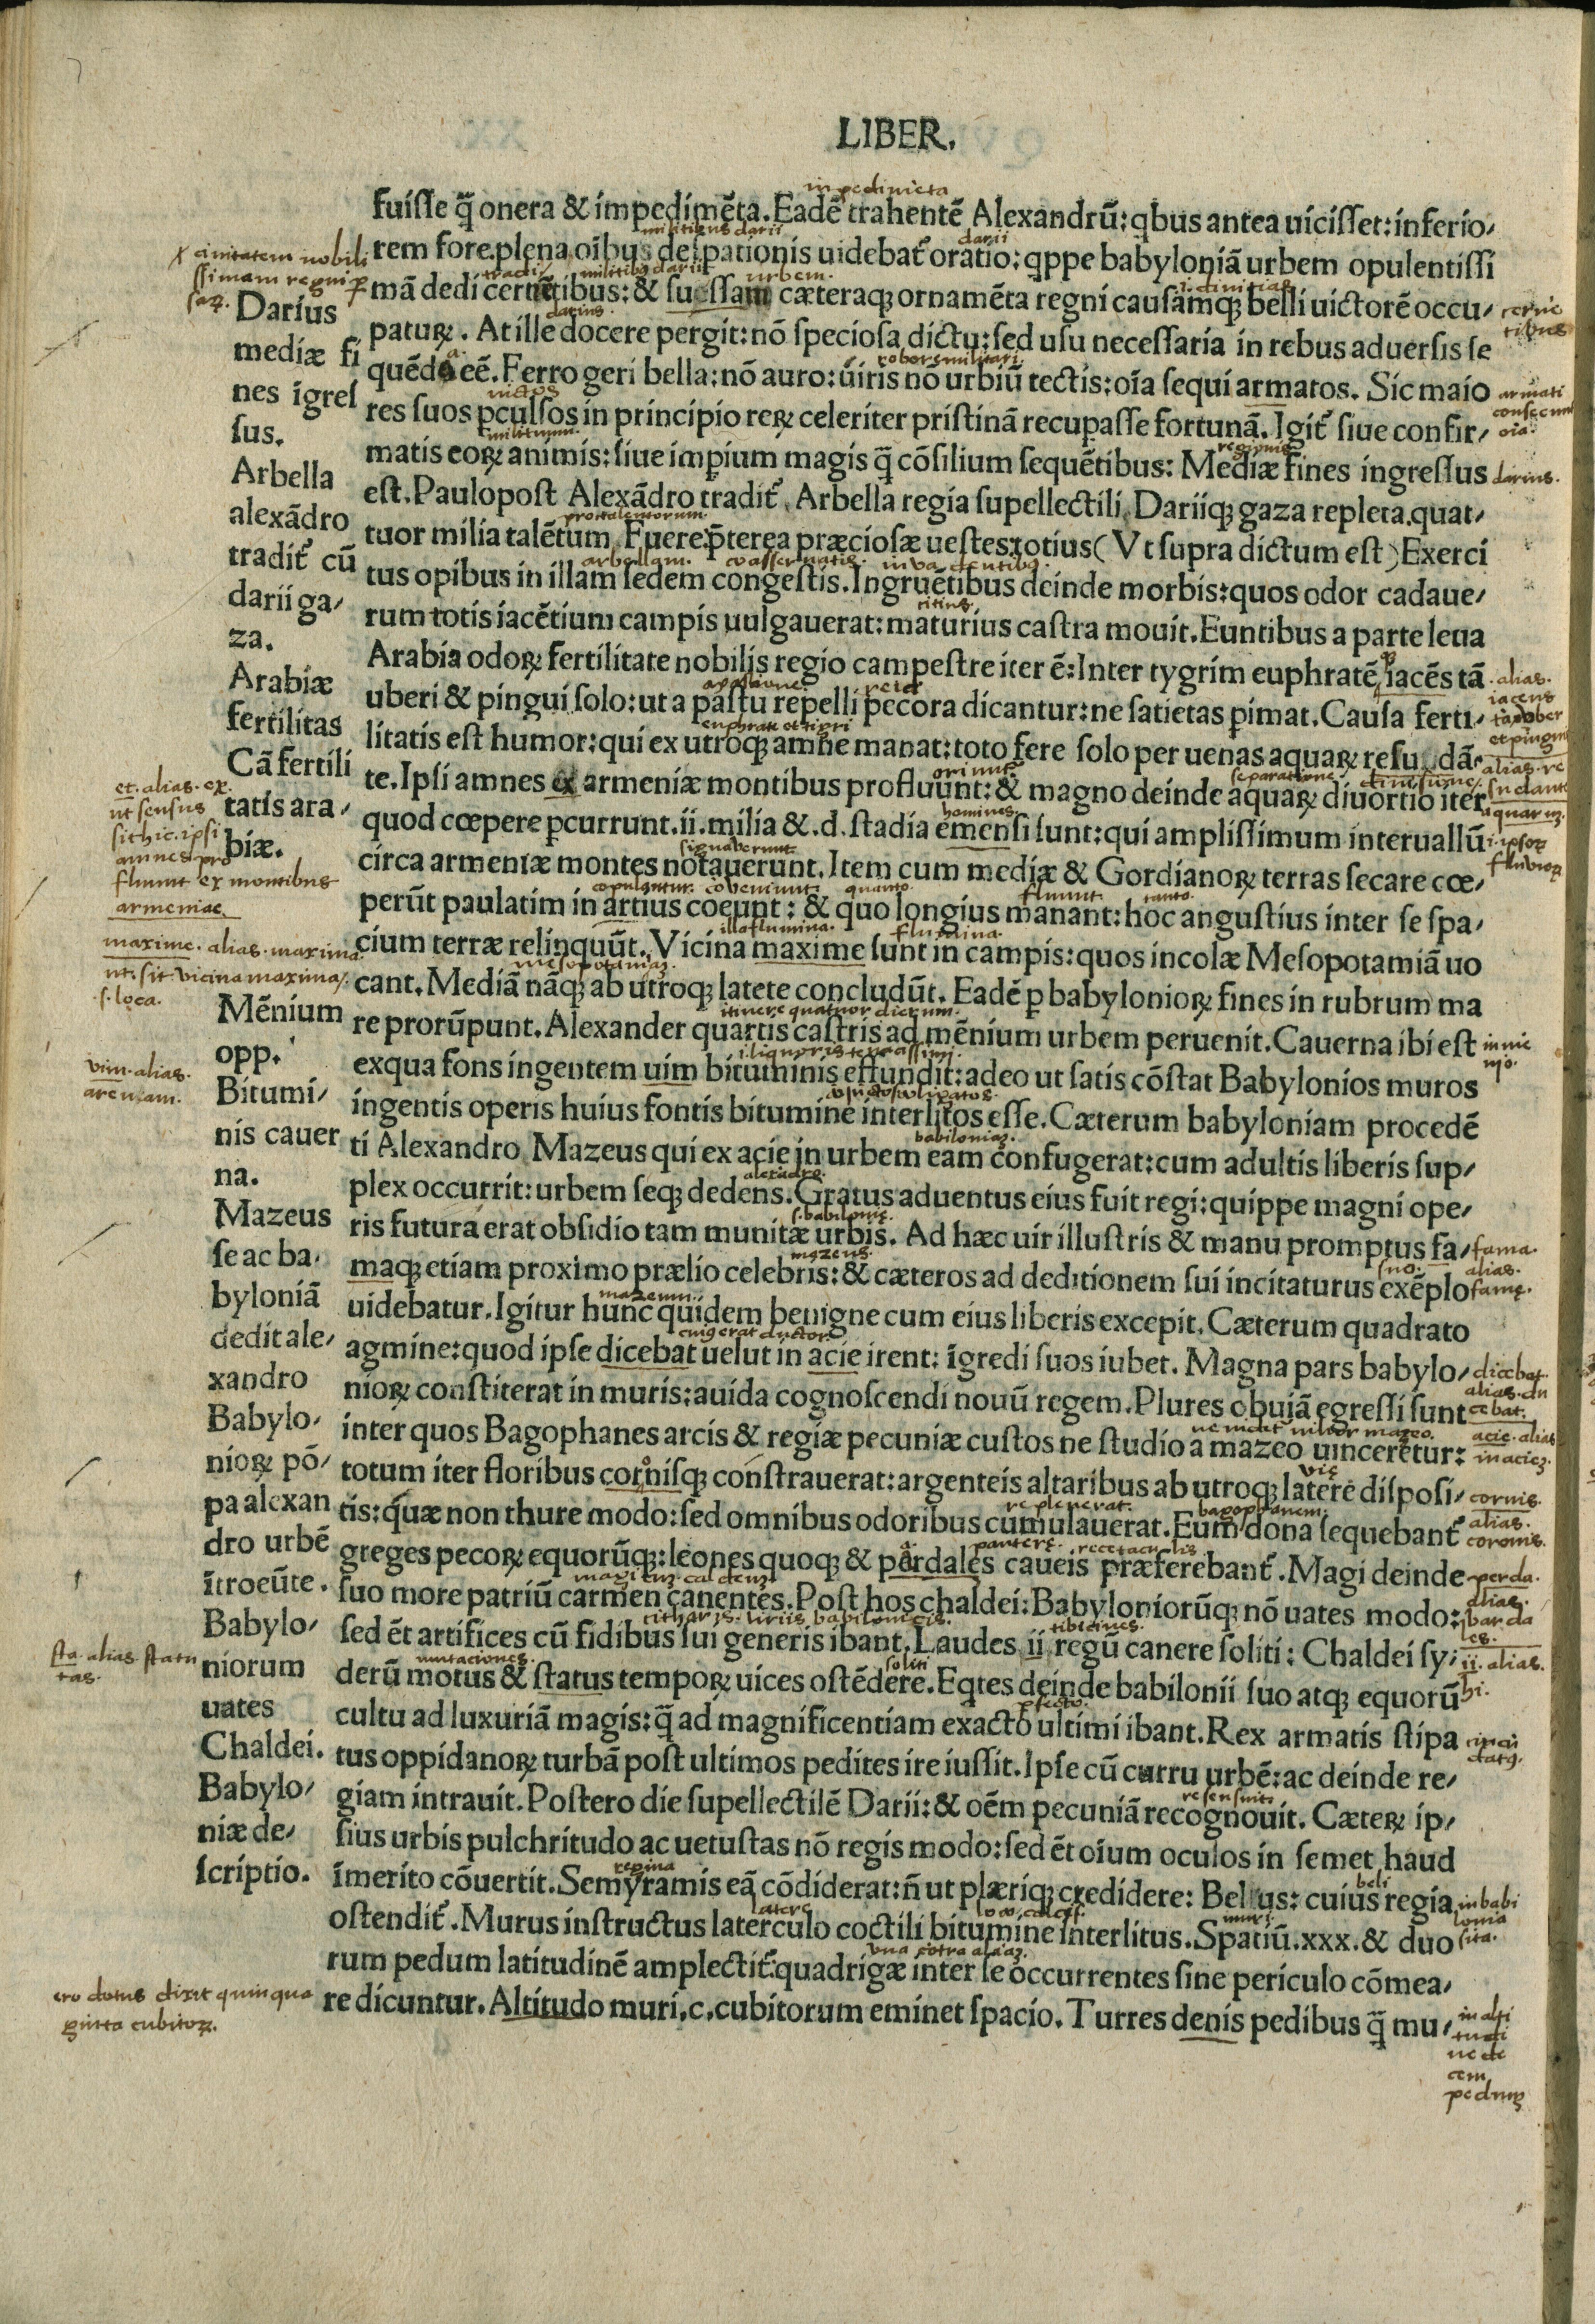 LIBER.
fuisse q̃ onera & impedimẽta. Eadẽ trahentẽ Alexandrũ: qbus antea uicisset: inferio/
rem fore. plena oĩbus despationis uidebat᷑ oratio: qppe babyloniã urbem opulentissi
mã dedi cernẽtibus: & suessam cæteraqꝫ ornamẽta regni causamqꝫ belli uictorẽ occu/
paturꝝ. At ille docere pergit: nõ speciosa dictu: sed usu necessaria in rebus aduersis se
quẽda eẽ. Ferro geri bella: nõ auro: uiris nõ urbiũ tectis: oĩa sequi armatos. Sic maio
res suos ꝑculsos in principio reꝝ celeriter pristinã recuꝑasse fortunã. Igit᷑ siue confir/
matis eoꝝ animis: siue imꝑium magis q̃ cõsilium sequẽtibus: Mediæ fines ingressus
est. Paulopost Alexãdro tradit᷑. Arbella regia supellectili. Dariiqꝫ gaza repleta. quat/
tuor milia talẽtum. Fuere p̃terea præciosæ uestes: totius (Vt supra dictum est) Exerci
tus opibus in illam sedem congestis. Ingruẽtibus deinde morbis: quos odor cadaue/
rum totis iacẽtium campis uulgauerat: maturius castra mouit. Euntibus a parte leua
Arabia odoꝝ fertilitate nobilis regio campestre iter ẽ: Inter tygrim euphratẽ iacẽs tã
uberi & pingui solo: ut a pastu repelli pecora dicantur: ne satietas ꝑimat. Causa ferti/
litatis est humor: qui ex utroqꝫ amne manat: toto fere solo per uenas aquaꝝ resudã
te. Ipsi amnes ex armeniæ montibus profluunt: & magno deinde aquaꝝ diuortio iter
quod cœpere ꝑcurrunt. ii. milia &. d. stadia emensi sunt: qui amplissimum interuallũ
circa armeniæ montes notauerunt. Item cum mediæ & Gordianoꝝ terras secare cœ/
perũt paulatim in artius coeunt: & quo longius manant: hoc angustius inter se spa/
cium terræ relinquũt. Vicina maxime sunt in campis: quos incolæ Mesopotamiã uo
cant. Mediã nãqꝫ ab utroqꝫ latete concludũt. Eadẽ ꝑ babylonioꝝ fines in rubrum ma
re prorũpunt. Alexander quartis castris ad mẽnium urbem peruenit. Cauerna ibi est
exqua fons ingentem uim bituminis effundit: adeo ut satis cõstat Babylonios muros
ingentis operis huius fontis bitumine interlitos esse. Cæterum babyloniam procedẽ
ti Alexandro Mazeus qui ex acie in urbem eam confugerat: cum adultis liberis sup/
plex occurrit: urbem seqꝫ dedens. Gratus aduentus eius fuit regi: quippe magni ope/
ris futura erat obsidio tam munitæ urbis. Ad hæc uir illustris & manu promptus fa/
maqꝫ etiam proximo prælio celebris: & cæteros ad deditionem sui incitaturus exẽplo
uidebatur. Igitur hunc quidem benigne cum eius liberis excepit. Cæterum quadrato
agmine: quod ipse dicebat uelut in acie irent: ĩgredi suos iubet. Magna pars babylo/
nioꝝ constiterat in muris: auida cognoscendi nouũ regem. Plures obuiã egressi sunt
inter quos Bagophanes arcis & regiæ pecuniæ custos ne studio a mazeo uinceretur:
totum iter floribus cornisqꝫ constrauerat: argenteis altaribus ab utroqꝫ latere disposi/
tis: quæ non thure modo: sed omnibus odoribus cumulauerat. Eum dona sequebant᷑
greges pecoꝝ equorũqꝫ: leones quoqꝫ & pardales caueis præferebant᷑. Magi deinde
suo more patriũ carmen canentes. Post hos chaldei: Babyloniorũqꝫ nõ uates modo:
sed ẽt artifices cũ fidibus sui generis ibant. Laudes ii regũ canere soliti: Chaldei sy/
derũ motus & status tempoꝝ uices ostẽdere. Eqtes deinde babilonii suo atqꝫ equorũ
cultu ad luxuriã magis: q̃ ad magnificentiam exacto ultimi ibant. Rex armatis stipa
tus oppidanoꝝ turbã post ultimos pedites ire iussit. Ipse cũ curru urbẽ: ac deinde re/
giam intrauit. Postero die supellectilẽ Darii: & oẽm pecuniã recognouit. Cæteꝝ ip/
sius urbis pulchritudo ac uetustas nõ regis modo: sed ẽt oĩum oculos in semet haud
ĩmerito cõuertit. Semyramis eã cõdiderat: ñ ut plæriqꝫ credidere: Belus: cuius regia
ostendit᷑. Murus instructus laterculo coctili bitumine interlitus. Spatiũ. xxx. & duo
rum pedum latitudinẽ amplectit᷑: quadrigæ inter se occurrentes sine periculo cõmea/
re dicuntur. Altitudo muri. c. cubitorum eminet spacio. Turres denis pedibus q̃ mu/
Darius
mediæ fi
nes ĩgres
sus.
Arbella
alexãdro
tradit᷑ cũ
darii ga/
za.
Arabiæ
fertilitas
Cã fertili
tatis ara/
biæ.
Mẽnium
opp.
Bitumi/
nis cauer
na.
Mazeus
se ac ba/
byloniã
dedit ale/
xandro
Babylo/
nioꝝ põ/
pa alexan
dro urbẽ
ĩtroeũte.
Babylo/
niorum
uates
Chaldei.
Babylo/
niæ de/
scriptio.
ciuitatem nobili
ssimam regni per
saꝝ.
et. alias. ex.
ut sensus
sit hic. ipsi
amnes pro
fluunt ex montibus
armeniae
maxime. alias. maxima
ut. sit. vicina maxima
.s. loca.
vim. alias.
arenam.
sta. alias statu
tas.
ero dotus dixit quinqua
ginta cubitoꝝ.
cerne
tibus
armati
oia.
darius.
alias.
iacens
et pingui
alias. re
sudante
aquarum.
i. ipsoꝝ
fluvioꝝ
fama.
alias.
famę.
dicebat.
alias. du
cebat.
acie. alias
in aciem.
cornis.
alias.
coronis.
perda.
alias.
parda
les.
ii. alias.
hi.
in babi
lonia
sita.
in alti
tudi
ne de
cem
pedum